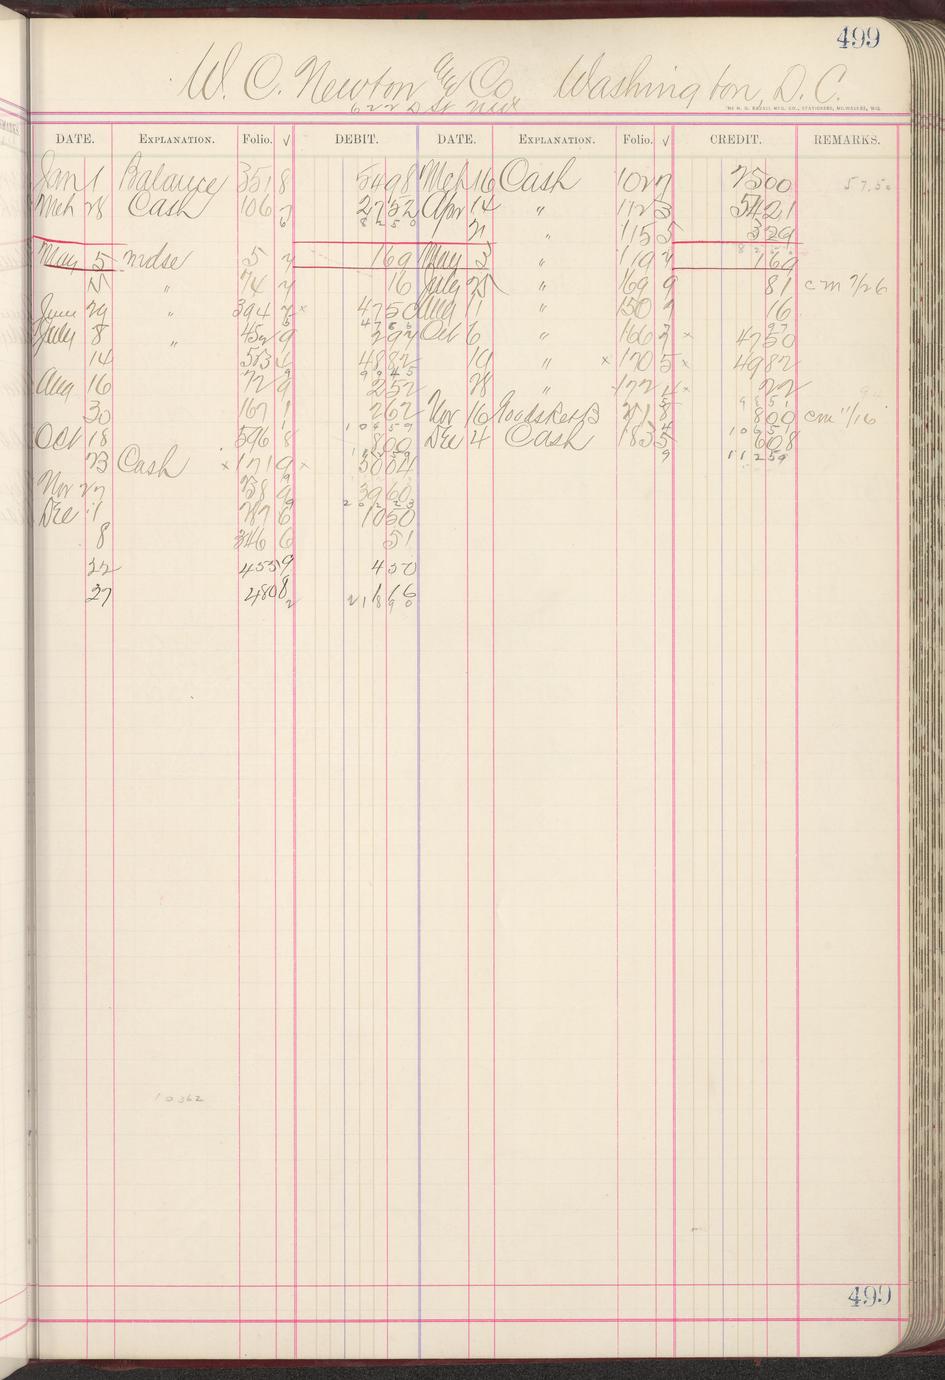 499
W. C. Newton & Co. Washington, D. C.
622 D St NW
DATE. EXPLANATION. Folio. √ DEBIT. DATE. EXPLANATION. Folio. √ CREDIT. REMARKS.
Jan 1 Balance 351 8 54 98 Mch 16 Cash 102 7 25 00 57.50
Mch 28 Cash 106 7 27 52 Apr 14 " 112 3 54 21
6 82 50 21 " 115 5 3 29
82 50
May 5 mdse 5 7 1 69 May 3 " 119 7 1 69
" 74 16 July 25 " 169 9 81 cm 7/26
June 29 " 394 47 50 Aug 11 " 150 16
July 8 " 45 2 97 Oct 6 " 166 × 47 50
14 513 48 82 19 " × 170 5 × 49 82
Aug 16 72 9 2 52 28 " 172 4 × 22
30 167 1 2 62 Nov 16 Goods Ret B 8 8 00 cm 11/16
Oct 18 596 8 8 00 Dec 4 Cash 183 5 6 08
23 Cash × 171 9 × 50 04 9 112 59
Nov 27 58 9 39 60
Dec 1 787 6 10 50
8 346 6 51
22 455 9 4 50
27 480 8 1 16
2 218 90
10362
499